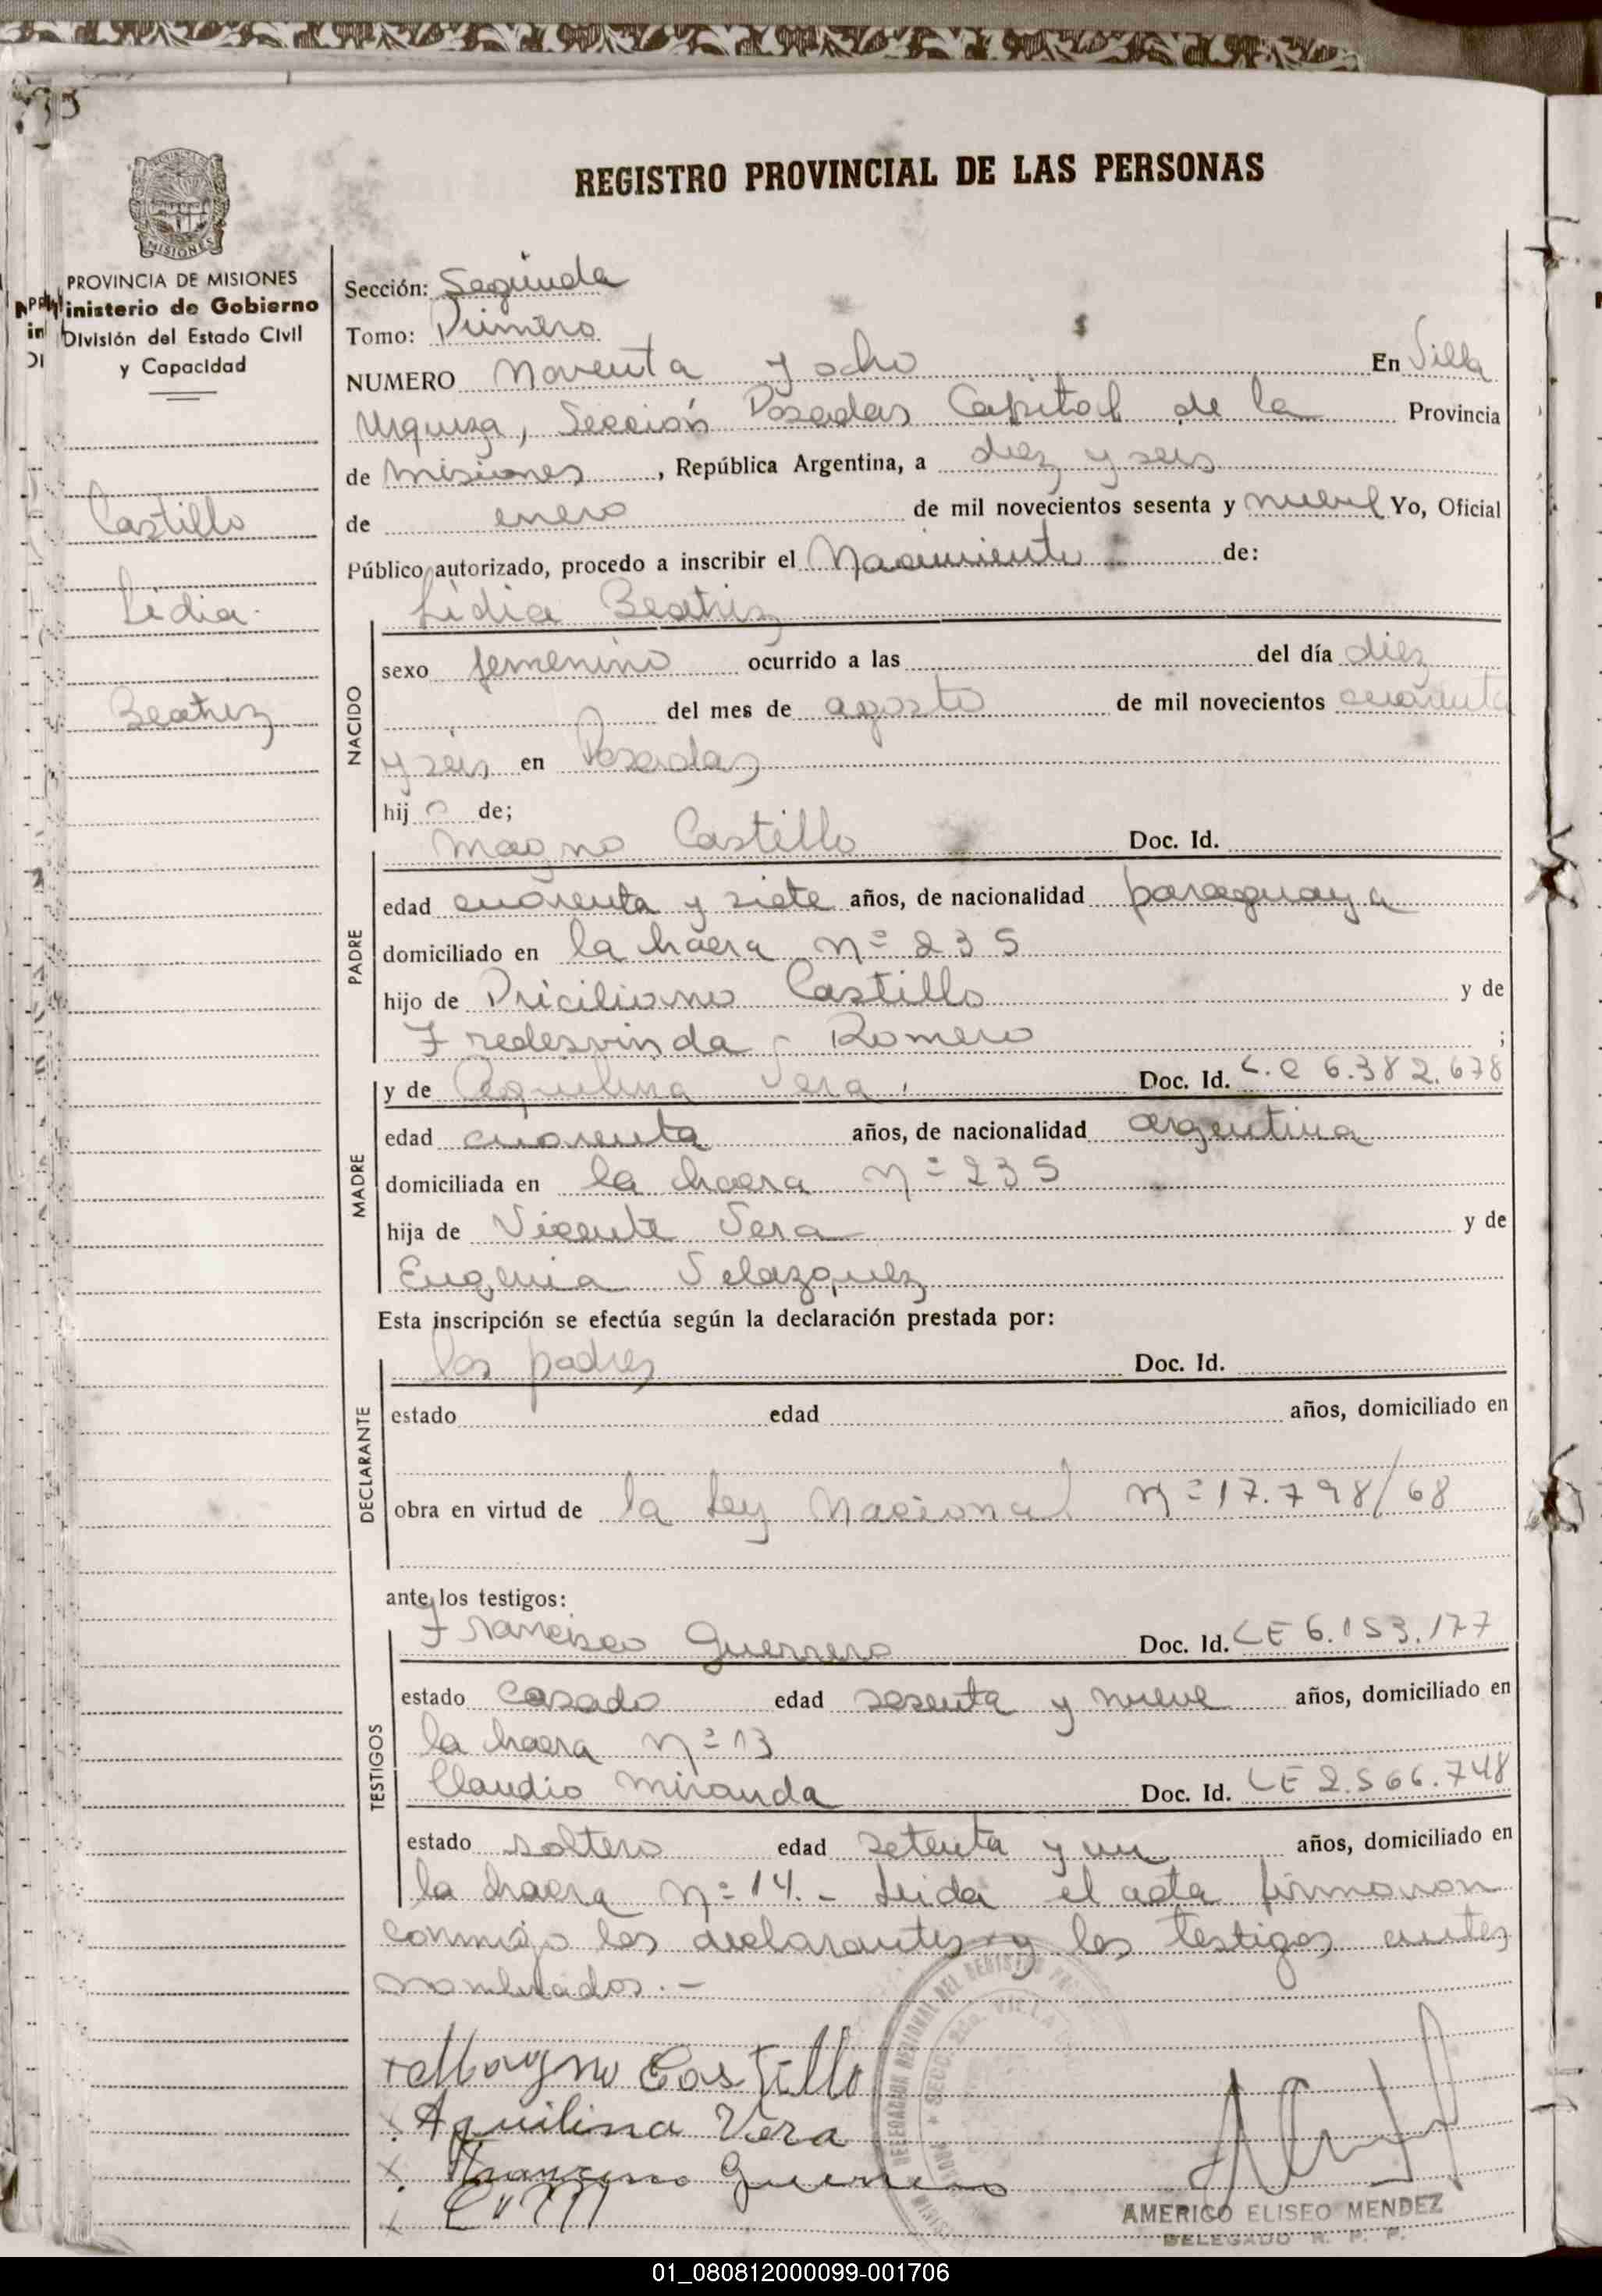 REGISTRO PROVINCIAL DE LAS PERSONAS
MISIONES
PROVINCIA DE MISIONES
Ministerio de Gobierno
División del Estado Civil
y Capacidad
Castillo
Lidia
Beatriz
Sección: Segunda
Tomo: Primero
NUMERO Noventa y ocho En Villa
Urquiza, Sección Posadas Capital de la Provincia
de Misiones, República Argentina, a diez y seis
de enero de mil novecientos sesenta y nueve Yo, Oficial
Público autorizado, procedo a inscribir el Nacimiento de:
Lidia Beatriz
NACIDO
sexo femenino ocurrido a las del día diez
del mes de agosto de mil novecientos cuarenta
y seis en Posadas
hij a de;
Magno Castillo Doc. Id.
PADRE
edad cuarenta y siete años, de nacionalidad paraguaya
domiciliado en la chacra nº 235
hijo de Priciliano Castillo y de
Fredesvinda Romero ;
MADRE
y de Aquilina Vera, Doc. Id. L.C 6.382.678
edad cuarenta años, de nacionalidad argentina
domiciliada en la chacra nº 235
hija de Vicente Vera y de
Eugenia Velazquez
Esta inscripción se efectúa según la declaración prestada por:
DECLARANTE
los padres Doc. Id.
estado edad años, domiciliado en
obra en virtud de la Ley Nacional nº 17.798/68
ante los testigos:
TESTIGOS
Francisco Guerrero Doc. Id. LE 6.153.177
estado casado edad sesenta y nueve años, domiciliado en
la chacra nº 13
Claudio Miranda Doc. Id. LE 2.566.748
estado soltero edad setenta y un años, domiciliado en
la chacra nº 14.- Leida el acta firmaron
conmigo los declarantes y los testigos antes
nombrados.-
Magno Castillo
Aquilina Vera
Francisco Guerrero
AMERICO ELISEO MENDEZ
DELEGADO R. P. P.
01_080812000099-001706